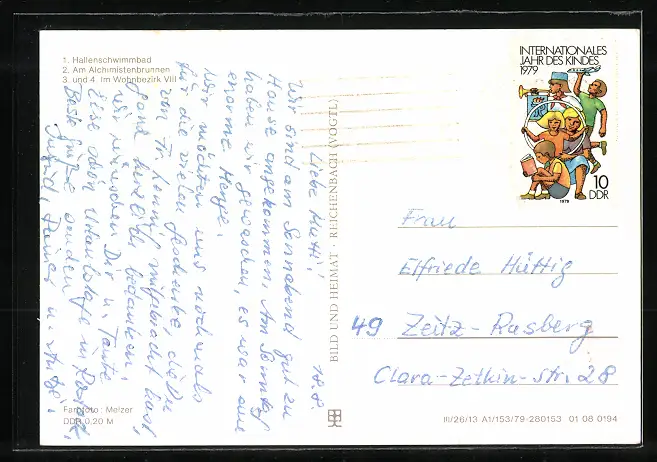 1. Hallenschwimmbad
2. Am Alchimistenbrunnen
3. und 4. Im Wohnbezirk VIII
18.8.
Liebe Mutti!
Wir sind am Sonnabend gut zu
Hause angekommen. Am Sonntag
haben wir gewaschen, es war eine
enorme Menge.
Wir möchten uns nochmals
für die vielen Geschenke, die Du
von Fr. mitgebracht hast,
ganz herzlich bedanken.
Wir wünschen Dir u. Tante
Else schöne Urlaubstage in
Beste Grüße senden
Ingrid, Rainer u.
Farbfoto: Melzer
DDR 0,20 M
BILD UND HEIMAT · REICHENBACH (VOGTL)
INTERNATIONALES
JAHR DES KINDES
1979
10
DDR
1979
Frau
Elfriede Hüttig
49 Zeitz-Rasberg
Clara-Zetkin-Str. 28
III/26/13 A1/153/79-280153 01 08 0194